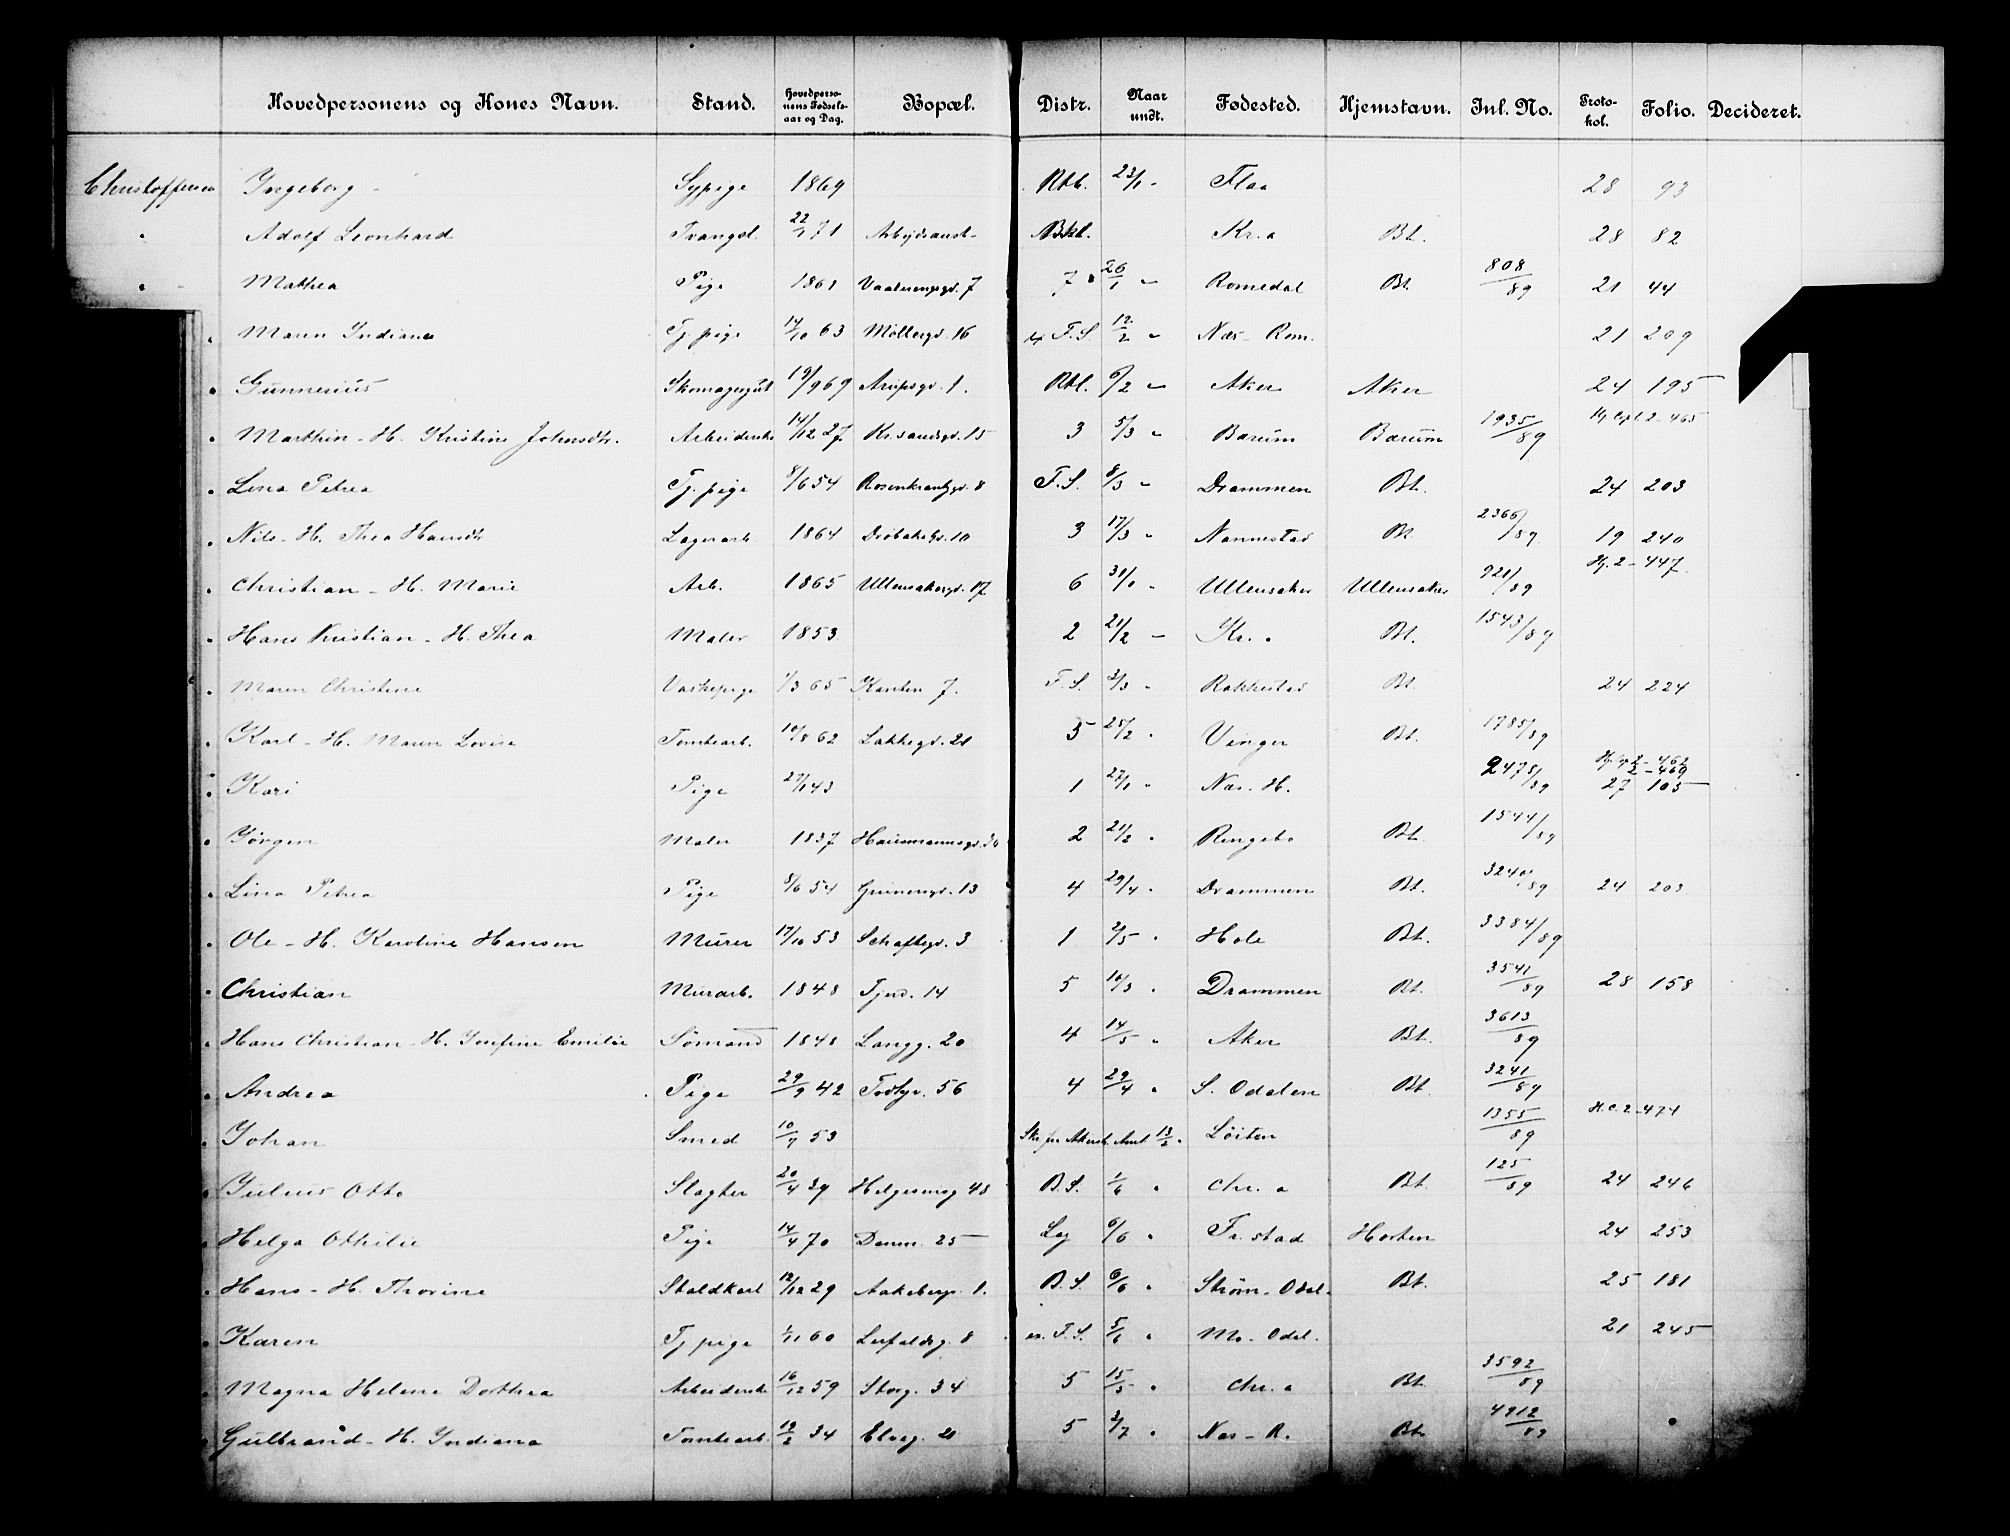 Hovedpersonens og Kones Navn. Stand. Hovedperso-nens Fødsels-aar og Dag. Bopæl. Distr. Naar undt. Fødested. Hjemstavn. Inl. No. Proto-kol. Folio. Decideret.
Christoffersen Ingeborg - Sypige 1869 Rtb. 23/1 - Flaa 28 93
" Adolf Leonhard Tvangsl. 22/1 71 Arbeidsanst. Kr.a Bt. 28 82
" Mathea Pige 1861 Vaalerengsgd. 7 7 26/1 " Romedal Bt. 808/89 21 44
" Maren Indiana Tj. pige 14/10 63 Møllergd. 16 F.S. 12/2 " Næs - Rom. 21 209
" Gunnerius Skomagergut 19/9 69 Arupsgd. 1. Rtl. 6/2 " Aker Aker 24 195
" Marthin - H. Kristine Johnsdtr. Arbeiderske 14/12 27 Kr.sandsgd. 15 3 5/3 " Bærum Bærum 1935/89 2-465
" Lina Petrea Tj. pige 8/6 54 Rosenkrantzgd. 8 F.S. 8/3 " Drammen Bt. 24 203
" Nils - H. Thea Hansdtr Lagerarb. 1864 Drøbaksgd. 10 3 17/3 " Nannestad Bt 2366/89 19 240
" Christian - H. Marie Arb. 1865 Ullensakergd. 17 6 31/1 " Ullensaker Ullensaker 921/89 Hj. 2-447
" Hans Kristian - H. Thea Maler 1853 2 21/2 " Kr. a Bt. 1543/89
" Maren Christine Vaskepige 1/3 65 Kanten 7. F.S. 2/3 " Rakkestad Bt. 24 224
" Karl - H. Maren Lovise Tomtearb. 10/8 62 Lakkegd. 21 5 25/2 " Vinger Bt. 1785/89
" Kari Pige 27/1 43 1 27/1 " Næs. H. 2475/89 2-462 2-469 27 105
" Jørgen Maler 1837 Hausmannsgd. 30 2 21/2 " Ringebo Bt. 1544/89
" Lina Petrea Pige 8/6 54 Grünersgd. 13 4 29/4 " Drammen Bt. 3240/89 24 203
" Ole - H. Karoline Hansen Murer 17/10 53 Schaftegd. 3 1 2/5 " Hole Bt. 3384/89
" Christian Murarb. 1848 Tjerd. 14 5 10/3 " Drammen Bt. 3541/89 28 158
" Hans Christian - H. Josefine Emilie Sømand 1848 Langg. 20 4 14/5 " Aker Bt. 3613/89
" Andrea Pige 29/9 42 Toftgd. 56 4 29/4 " S. Odalen Bt. 3241/89
" Johan Smed 10/7 53 Akersh. Amt 13/2 " Løiten 1355/89 H.C. 2-474
" Julius Otto Slagter 20/4 39 Helgesensg 48 B.S. 1/6 " Chr. a Bt. 125/89 24 246
" Helga Othilie Pige 14/4 70 Damm. 25 Leg 6/6 " Fr.stad Horten 24 253
" Hans - H. Thorine Staldkarl 12/12 29 Aakebergv. 1. B.S. 6/6 " Strøm - Odal. Bt. 25 181
" Karen Tj pige 1/11 60 Leirfaldsg. 8 F.S. 5/6 " Mo - Odal. 21 245
" Magna Helene Dorthea Arbeiderske 16/12 59 Storg. 34 5 15/5 " Chr. a Bt. 3592/89
" Gulbrand - H. Indiana Tomtearb. 19/2 34 Elveg. 21 5 2/7 " Næs - R. Bt. 4912/89